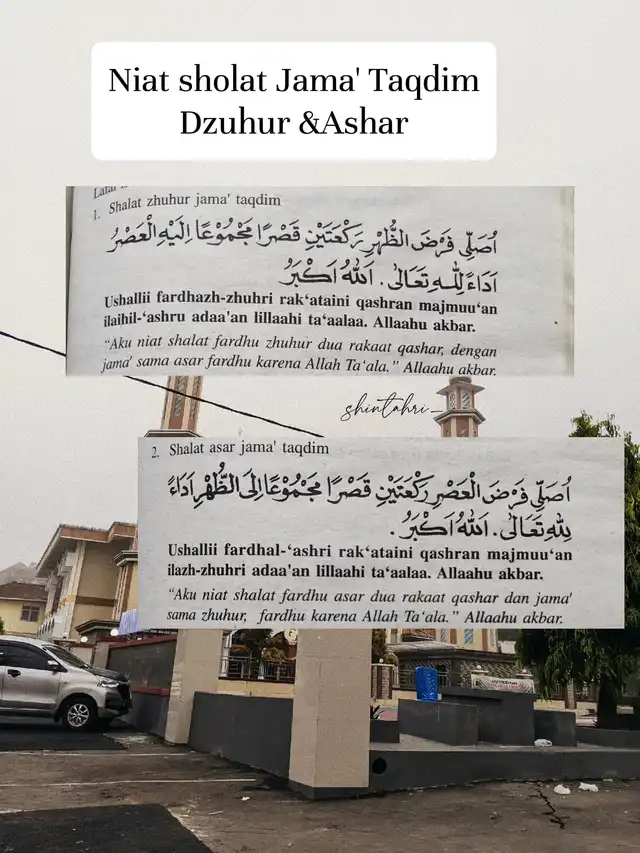 Niat sholat Jama' Taqdim
Dzuhur &Ashar
1. Shalat zhuhur jama' taqdim
اُصَلِّى فَرْضَ الظُّهْرِ رَكْعَتَيْنِ قَصْرًا مَجْمُوْعًا اِلَيْهِ الْعَصْرُ
اَدَاءً لِلّٰهِ تَعَالٰى . اَللّٰهُ اَكْبَرُ
Ushallii fardhazh-zhuhri rak‘ataini qashran majmuu‘an
ilaihil-‘ashru adaa'an lillaahi ta‘aalaa. Allaahu akbar.
“Aku niat shalat fardhu zhuhur dua rakaat qashar, dengan
jama' sama asar fardhu karena Allah Ta‘ala.” Allaahu akbar.
shintahri_
2. Shalat asar jama' taqdim
اُصَلِّى فَرْضَ الْعَصْرِ رَكْعَتَيْنِ قَصْرًا مَجْمُوْعًا اِلَى الظُّهْرِ اَدَاءً
لِلّٰهِ تَعَالٰى . اَللّٰهُ اَكْبَرُ .
Ushallii fardhal-‘ashri rak‘ataini qashran majmuu‘an
ilazh-zhuhri adaa'an lillaahi ta‘aalaa. Allaahu akbar.
“Aku niat shalat fardhu asar dua rakaat qashar dan jama'
sama zhuhur, fardhu karena Allah Ta‘ala.” Allaahu akbar.